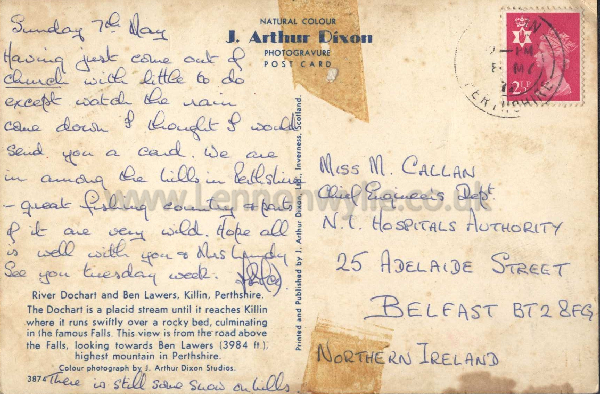 Sunday 7th May
Having just come out of
church with little to do
except watch the rain
come down I thought I would
send you a card. We are
in among the hills in Perthshire
- great fishing country & parts
of it are very wild. Hope all
is well with you & Mrs
See you tuesday week.
NATURAL COLOUR
J. Arthur Dixon
PHOTOGRAVURE
POST CARD
River Dochart and Ben Lawers, Killin, Perthshire.
The Dochart is a placid stream until it reaches Killin
where it runs swiftly over a rocky bed, culminating
in the famous Falls. This view is from the road above
the Falls, looking towards Ben Lawers (3984 ft.),
highest mountain in Perthshire.
Colour photograph by J. Arthur Dixon Studios.
3874
There is still some snow on hills.
Printed and Published by J. Arthur Dixon, Ltd., Inverness, Scotland.
PERTHSHIRE
2½P
MISS M. CALLAN
Chief Engineer's Dept
N.I. HOSPITALS AUTHORITY
25 ADELAIDE STREET
BELFAST BT2 8FG
NORTHERN IRELAND
www.Lennonwylie.co.uk